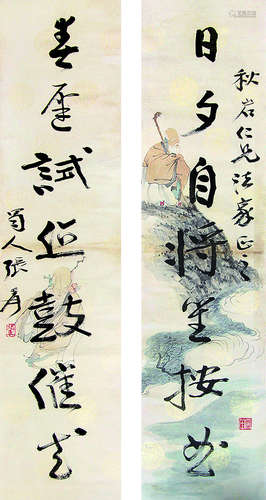 日夕自將笙按曲
秋岩仁兄法家正之
春庭試近鼓催花
蜀人張爰